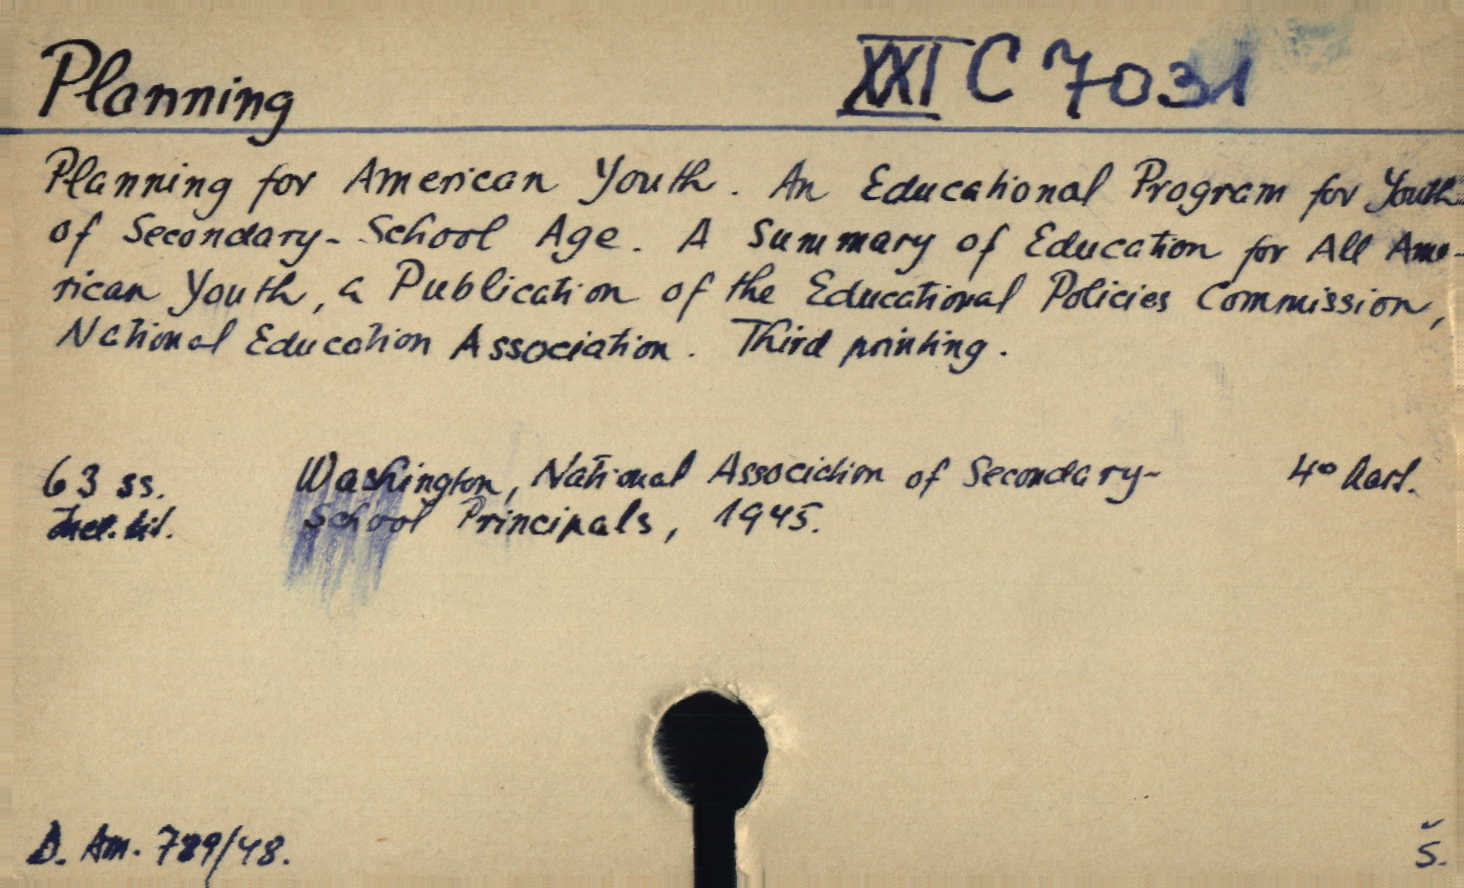 Planning XXI C 7031
Planning for American Youth. An Educational Program for Youth
of Secondary-School Age. A Summary of Education for All Ame-
rican Youth, a Publication of the Educational Policies Commission,
National Education Association. Third printing.
63 ss. Washington, National Association of Secondary- 4° kart.
Incl. tit. School Principals, 1945.
D. Am. 789/48. Š.